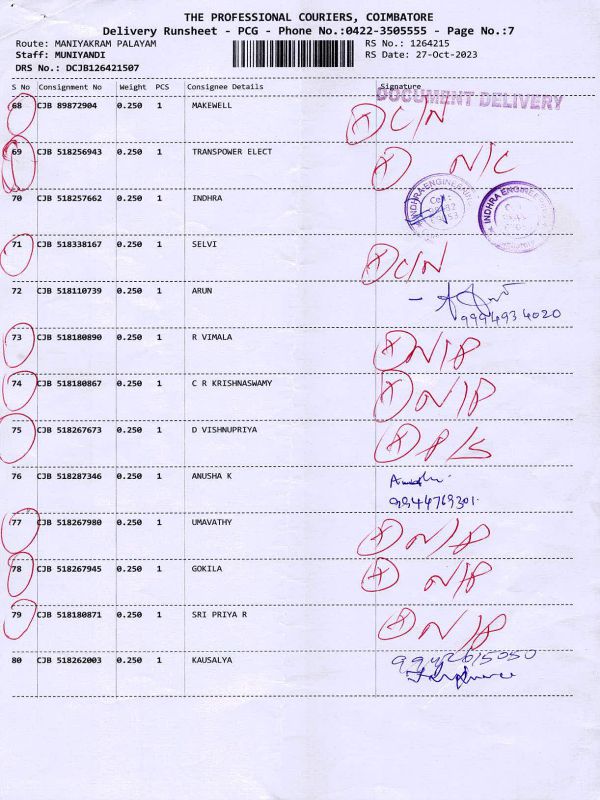 THE PROFESSIONAL COURIERS, COIMBATORE
Delivery Runsheet - PCG - Phone No.:0422-3505555 - Page No.:7
Route: MANIYAKRAM PALAYAM RS No.: 1264215
Staff: MUNIYANDI RS Date: 27-Oct-2023
DRS No.: DCJB126421507
S No Consignment No Weight PCS Consignee Details Signature
DOCUMENT DELIVERY
68 CJB 89872904 0.250 1 MAKEWELL X C/N
69 CJB 518256943 0.250 1 TRANSPOWER ELECT X N/C
70 CJB 518257662 0.250 1 INDHRA INDHRA ENGINEERING Cell: INDHRA ENGINEERING
71 CJB 518338167 0.250 1 SELVI X C/N
72 CJB 518110739 0.250 1 ARUN
9994934020
73 CJB 518180890 0.250 1 R VIMALA X N/P
74 CJB 518180867 0.250 1 C R KRISHNASWAMY X N/P
75 CJB 518267673 0.250 1 D VISHNUPRIYA X P/S
76 CJB 518287346 0.250 1 ANUSHA K
9944769301.
77 CJB 518267980 0.250 1 UMAVATHY X N/P
78 CJB 518267945 0.250 1 GOKILA X N/P
79 CJB 518180871 0.250 1 SRI PRIYA R X N/P
80 CJB 518262003 0.250 1 KAUSALYA 9942615050